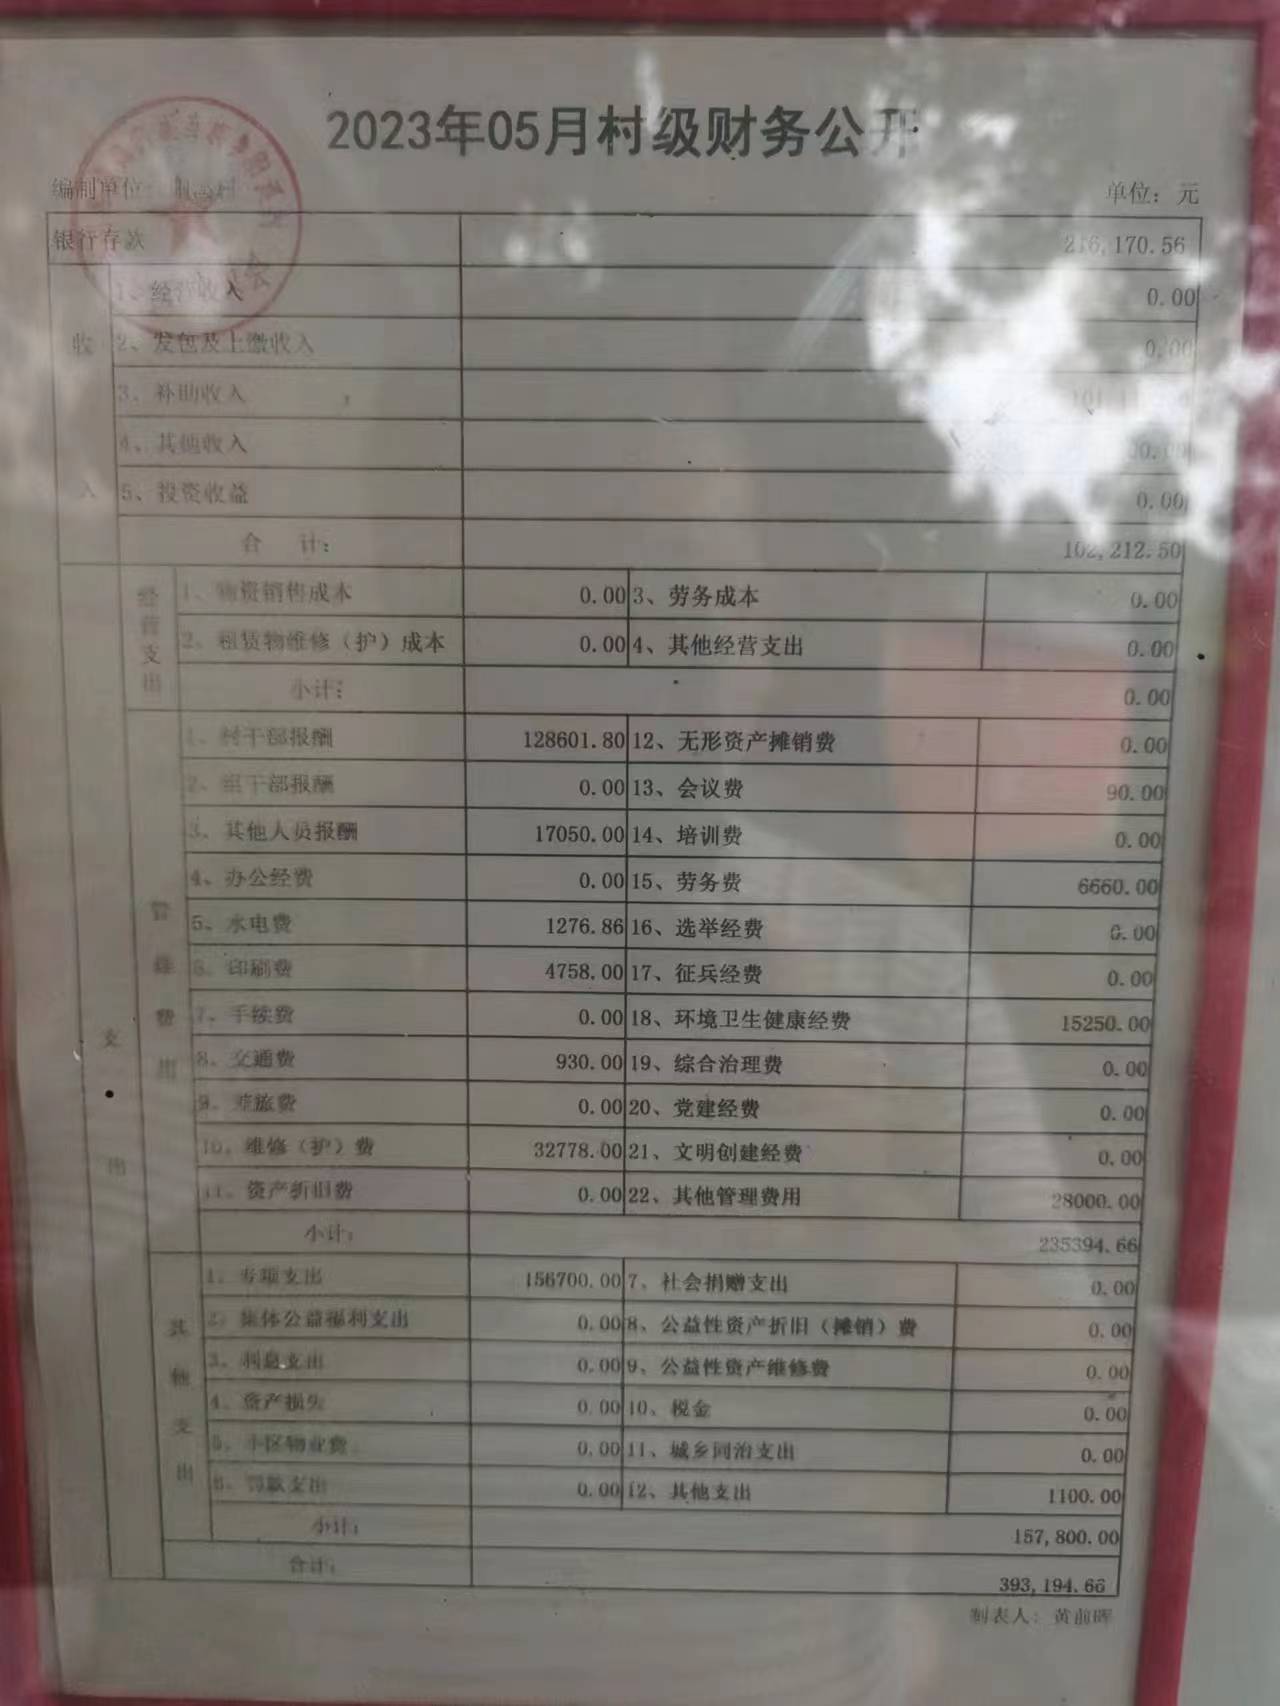 2023年05月村级财务公开
编制单位: 村
单位: 元
银行存款 216,170.56
收入
1、经营收入 0.00
2、发包及上缴收入 0.00
3、补助收入
4、其他收入
5、投资收益 0.00
合 计: 102,212.50
支出
经营支出
1、物资销售成本 0.00 3、劳务成本 0.00
2、租赁物维修（护）成本 0.00 4、其他经营支出 0.00
小计: 0.00
管理费用
1、村干部报酬 128601.80 12、无形资产摊销费 0.00
2、组干部报酬 0.00 13、会议费 90.00
3、其他人员报酬 17050.00 14、培训费 0.00
4、办公经费 0.00 15、劳务费 6660.00
5、水电费 1276.86 16、选举经费 0.00
6、印刷费 4758.00 17、征兵经费 0.00
7、手续费 0.00 18、环境卫生健康经费 15250.00
8、交通费 930.00 19、综合治理费 0.00
9、差旅费 0.00 20、党建经费 0.00
10、维修（护）费 32778.00 21、文明创建经费 0.00
11、资产折旧费 0.00 22、其他管理费用 28000.00
小计: 235394.66
其他支出
1、专项支出 156700.00 7、社会捐赠支出 0.00
2、集体公益福利支出 0.00 8、公益性资产折旧（摊销）费 0.00
3、利息支出 0.00 9、公益性资产维修费 0.00
4、资产损失 0.00 10、税金 0.00
5、小区物业费 0.00 11、城乡同治支出 0.00
6、罚款支出 0.00 12、其他支出 1100.00
小计: 157,800.00
合计: 393,194.66
制表人: 黄前晖